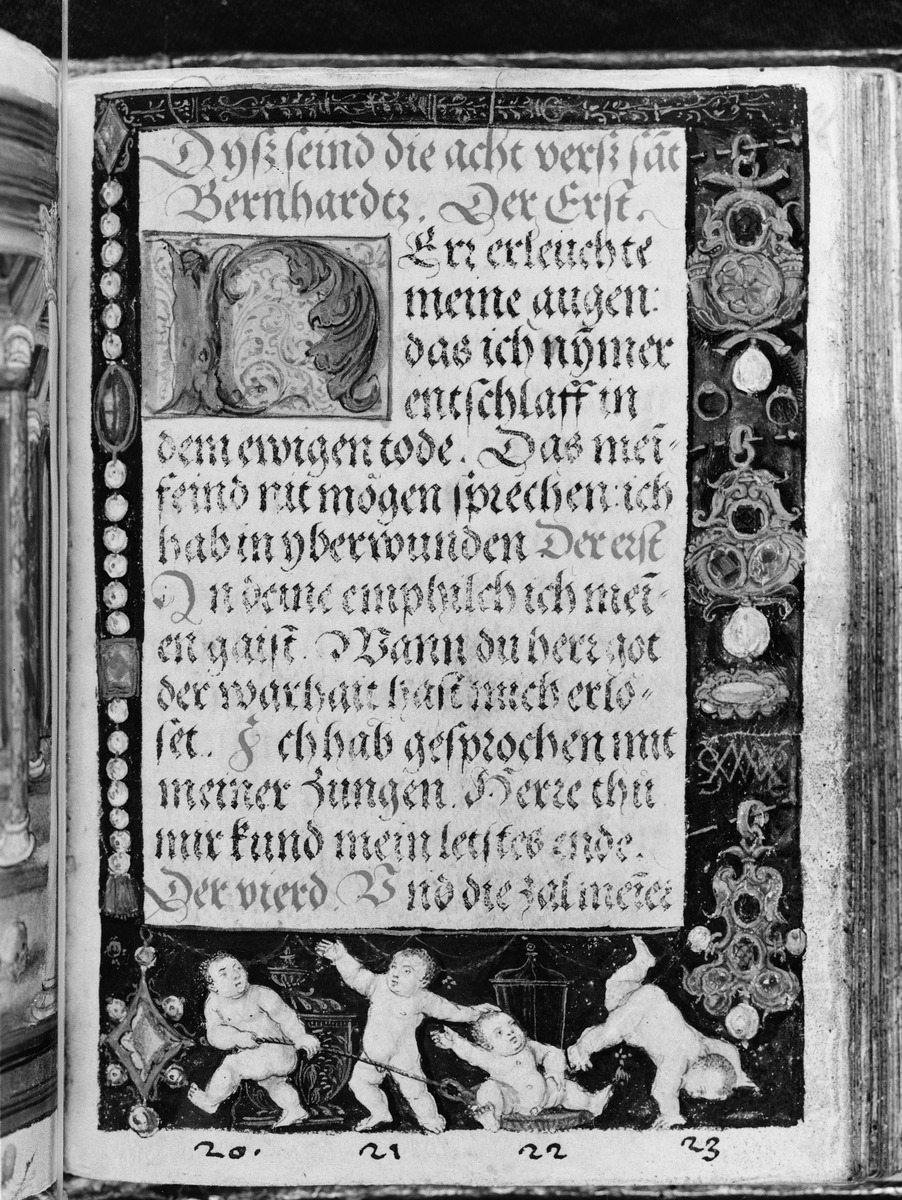 Dyß seind die acht verß sāt
Bernhardtz. Der Erst.
HErr erleuchte
meine augen:
das ich nȳmer
entschlaff in
dem ewigen tode. Das meī-
feind nit mögen sprechen: ich
hab in yberwunden Der erst
In deine emphilch ich meī-
en gaist. Wann du herr got
der warhait hast mich erlö-
set. Ich hab gesprochen mit
meiner zungen. Herre thů
mir kund mein letstes ende.
Der vierd Vnd die zal meīer
20. 21 22 23